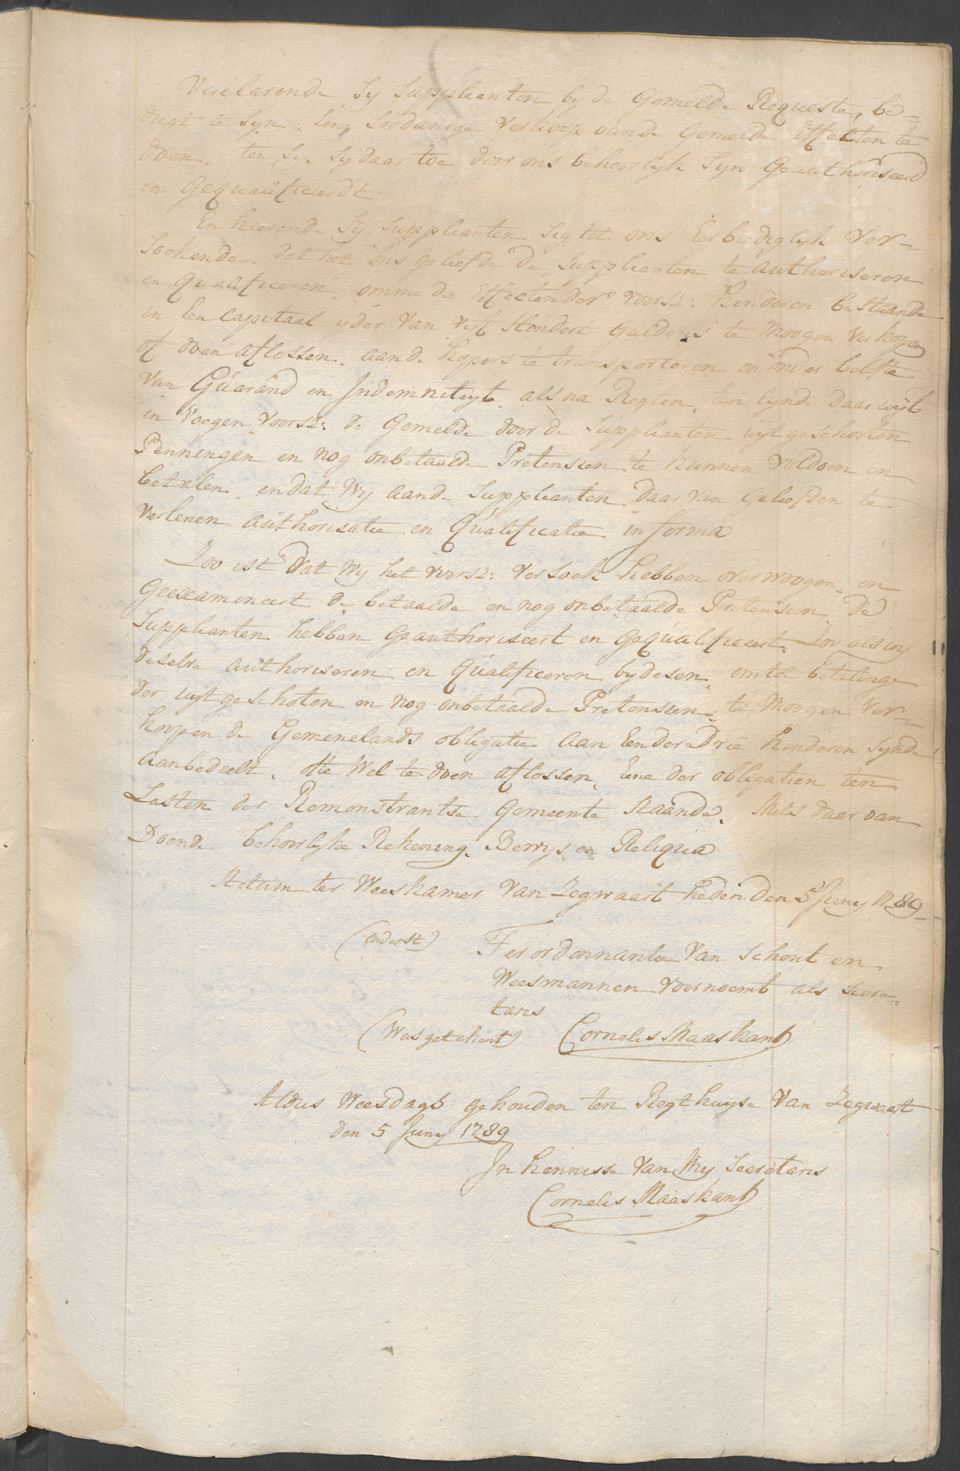 Verclarende Sij Supplianten bij de Gemelde Requeste, be-
dugt te Syn, Eene Soodanige Verkoop vande Gemelde Effecten te
doen, ten Sij, Sij daar toe door ons behoorlijk Syn Geauthoriseerd
en Gequalificeerdt
En keerende Sij Supplianten Sig tot ons Eerbiediglijk Ver-
Soekende, dat het ons geliefde de Supplianten te authoriseren
en Qualificeren omme de Effecten der voorsz: Kinderen bestaande
in Een Capitaal ijder Van Vijf Hondert Guldens te Moogen Verkopen
of doen aflossen, aan de Kopers te transporteren onder belofte
Van Guarand en Indemniteijt als na Regten, ten Eynde daar uijt
in Voegen Voorsz: de Gemelde door de Supplianten uijtgeschoten
Penningen en nog onbetaalde Pretensien te kunnen Voldoen en
betalen, en dat Wij aan de Supplianten daar van Geliefden te
Verlenen authorisatie en Qualificatie in forma
Zoo ist Dat Wij het voorsz: Versoek hebben overwoogen, en
Geexamineert de betaalde en nog onbetaalde Pretensien, de
Supplianten hebben Geauthoriseert en Gequalificeert, Zoo als wij
deselve authoriseren en Qualificeren bijdesen, om tot betalinge
der uijtgeschoten en nog onbetaalde Pretensien, te Moogen Ver-
koopen de Gemenelands obligatie aan Een der Drie Kinderen Synde
Aanbedeelt, Als Wel te doen aflossen, Eene der obligatien ten
Lasten der Remonstrantse Gemeente Staande, Mits daar van
Doende behoorlijke Rekening, Bewijs en Reliqua
Actum ter Weeskamer Van Zegwaart heden den 5 Juny 1789
(onderst) Ter ordonnantie Van Schout en
Weesmannen Voornoemt als Secre-
taris
(Was getekent) Cornelis Maaskant
Aldus Weesdagh gehouden ten Regthuyse Van Zegwaart
den 5 Juny 1789
In Kennisse Van Mij Secretaris
Cornelis Maaskant